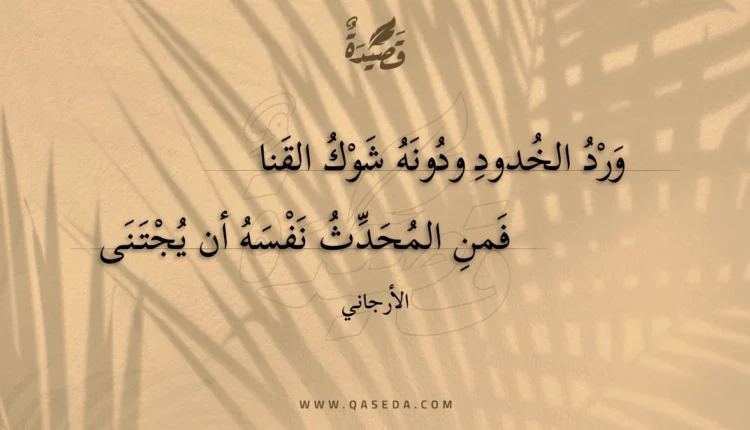 قَصِيْدَةٌ
وَرْدُ الخُدودِ ودُونَهُ شَوْكُ القَنا
فَمنِ المُحَدِّثُ نَفْسَهُ أن يُجْتَنَى
الأرجاني
WWW.QASEDA.COM